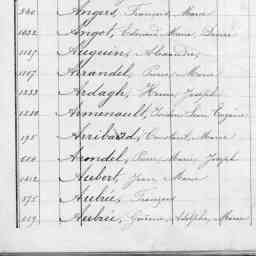 940 Angers, François Marie
1032 Angot, Edouard Marie Désiré
1127 Auguin, Alexandre
1107 Arrandel, Pierre Marie
1233 Ardagh, Henri Joseph
1210 Armenault, Jean Eugène
195 Arribard, Constant Marie
610 Arondel, Pierre Marie Joseph
1012 Aubert, Jean Marie
875 Aubrée, François
119 Aubrée, Adolphe Marie